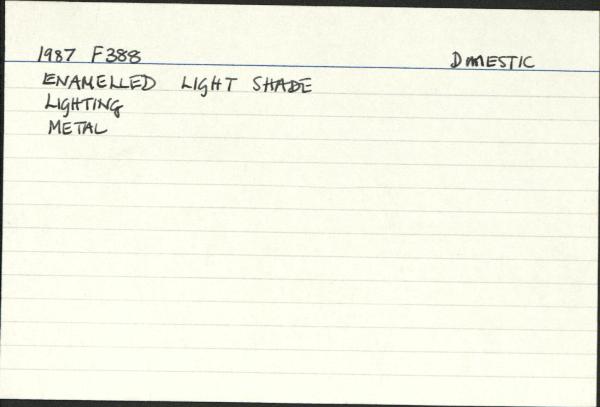 1987 F388 DOMESTIC
ENAMELLED LIGHT SHADE
LIGHTING
METAL